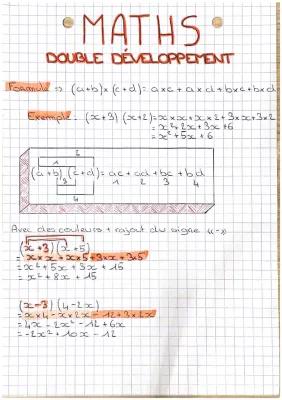 MATHS
DOUBLE DÉVELOPPEMENT
Formule => (a+b)x(c+d)= axc+axd+bxc+bxd
Exemple = (x+3)(x+2)=x×x+x×2+3×x+3×2
= x²+2x+3x+6
= x²+5x+6
2
1
(a+b)(c+d)= ac+ad+bc+bd
3 1 2 3 4
4
Avec des couleurs + rajout du signe «->
(x+3)(x+5)
= x×x+x×5+3×x+3×5
= x²+5x+3x+15
= x²+8x+15
(x-3)(4-2x)
= x×4-x×2x-12+3×2x
= 4x-2x²-12+6x
= -2x²+10x-12